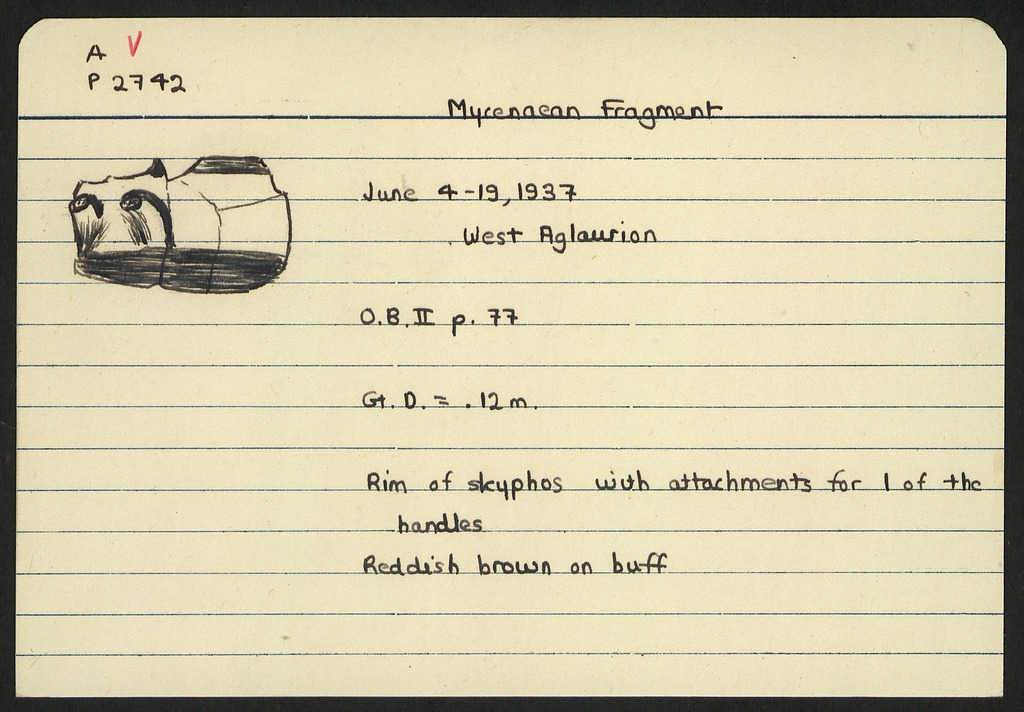 A V
P 2742
Mycenaean Fragment
June 4-19, 1937
West Aglaurion
O.B. II p. 77
Gt. D. = .12 m.
Rim of skyphos with attachments for 1 of the
handles
Reddish brown on buff